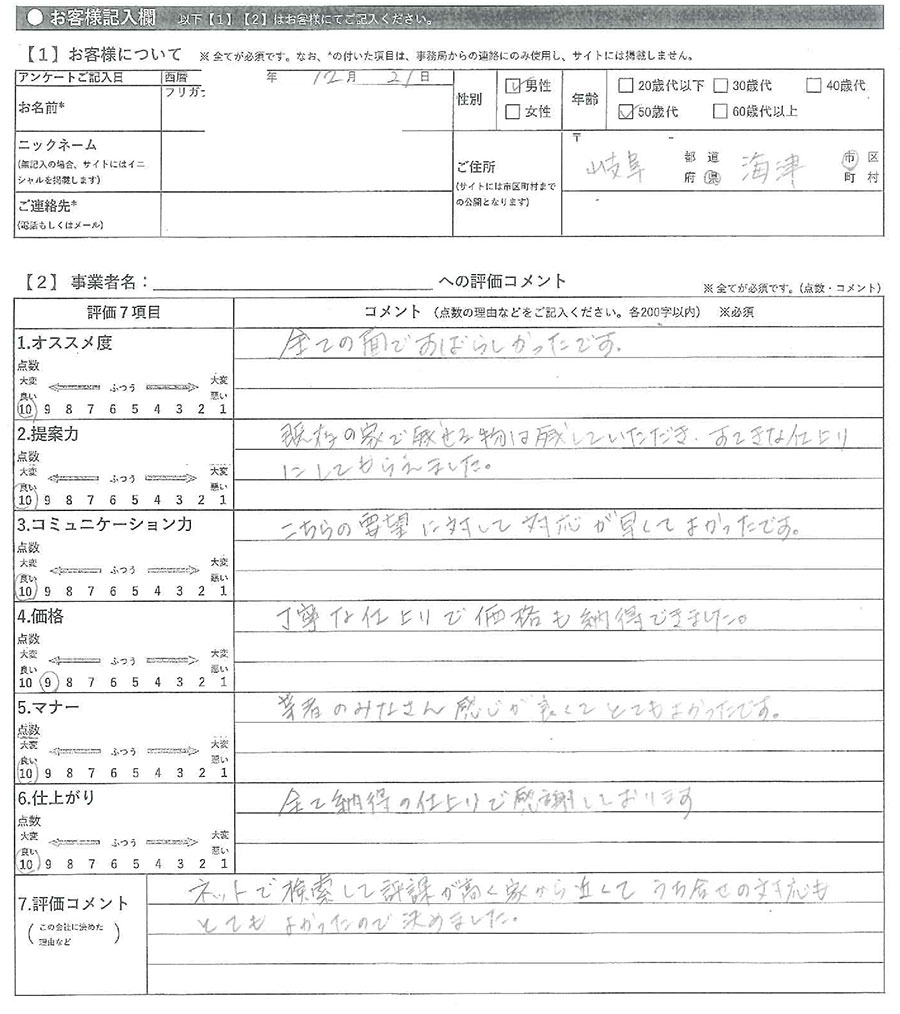 ● お客様記入欄 以下【1】【2】はお客様にてご記入ください。
【1】お客様について ※ 全てが必須です。なお、*の付いた項目は、事務局からの連絡にのみ使用し、サイトには掲載しません。
アンケートご記入日 西暦 年 12月 21日
性別 男性 女性
年齢 20歳代以下 30歳代 40歳代
50歳代 60歳代以上
お名前* フリガナ
ニックネーム
(無記入の場合、サイトにはイニ
シャルを掲載します)
ご住所
(サイトには市区町村まで
の公開となります)
〒 -
岐阜 都 道 府 県 海津 市 区 町 村
ご連絡先*
(電話もしくはメール)
【2】 事業者名: への評価コメント
※ 全てが必須です。(点数・コメント)
評価7項目 コメント (点数の理由などをご記入ください。各200字以内) ※必須
1.オススメ度
点数
大変 良い ふつう 大変 悪い
10 9 8 7 6 5 4 3 2 1
全ての面ですばらしかったです。
2.提案力
点数
大変 良い ふつう 大変 悪い
10 9 8 7 6 5 4 3 2 1
現在の家で残せる物は残していただき、すてきな仕上り
にしてもらえました。
3.コミュニケーション力
点数
大変 良い ふつう 大変 悪い
10 9 8 7 6 5 4 3 2 1
こちらの要望に対して対応が早してよかったです。
4.価格
点数
大変 良い ふつう 大変 悪い
10 9 8 7 6 5 4 3 2 1
丁寧な仕上りで価格も納得できました。
5.マナー
点数
大変 良い ふつう 大変 悪い
10 9 8 7 6 5 4 3 2 1
業者のみなさん感じが良くてとてもよかったです。
6.仕上がり
点数
大変 良い ふつう 大変 悪い
10 9 8 7 6 5 4 3 2 1
全て納得の仕上りで感謝しております
7.評価コメント
(この会社に決めた
理由など)
ネットで検索して評課が高く家から近くてうち合せの対応も
とてもよかったので決めました。